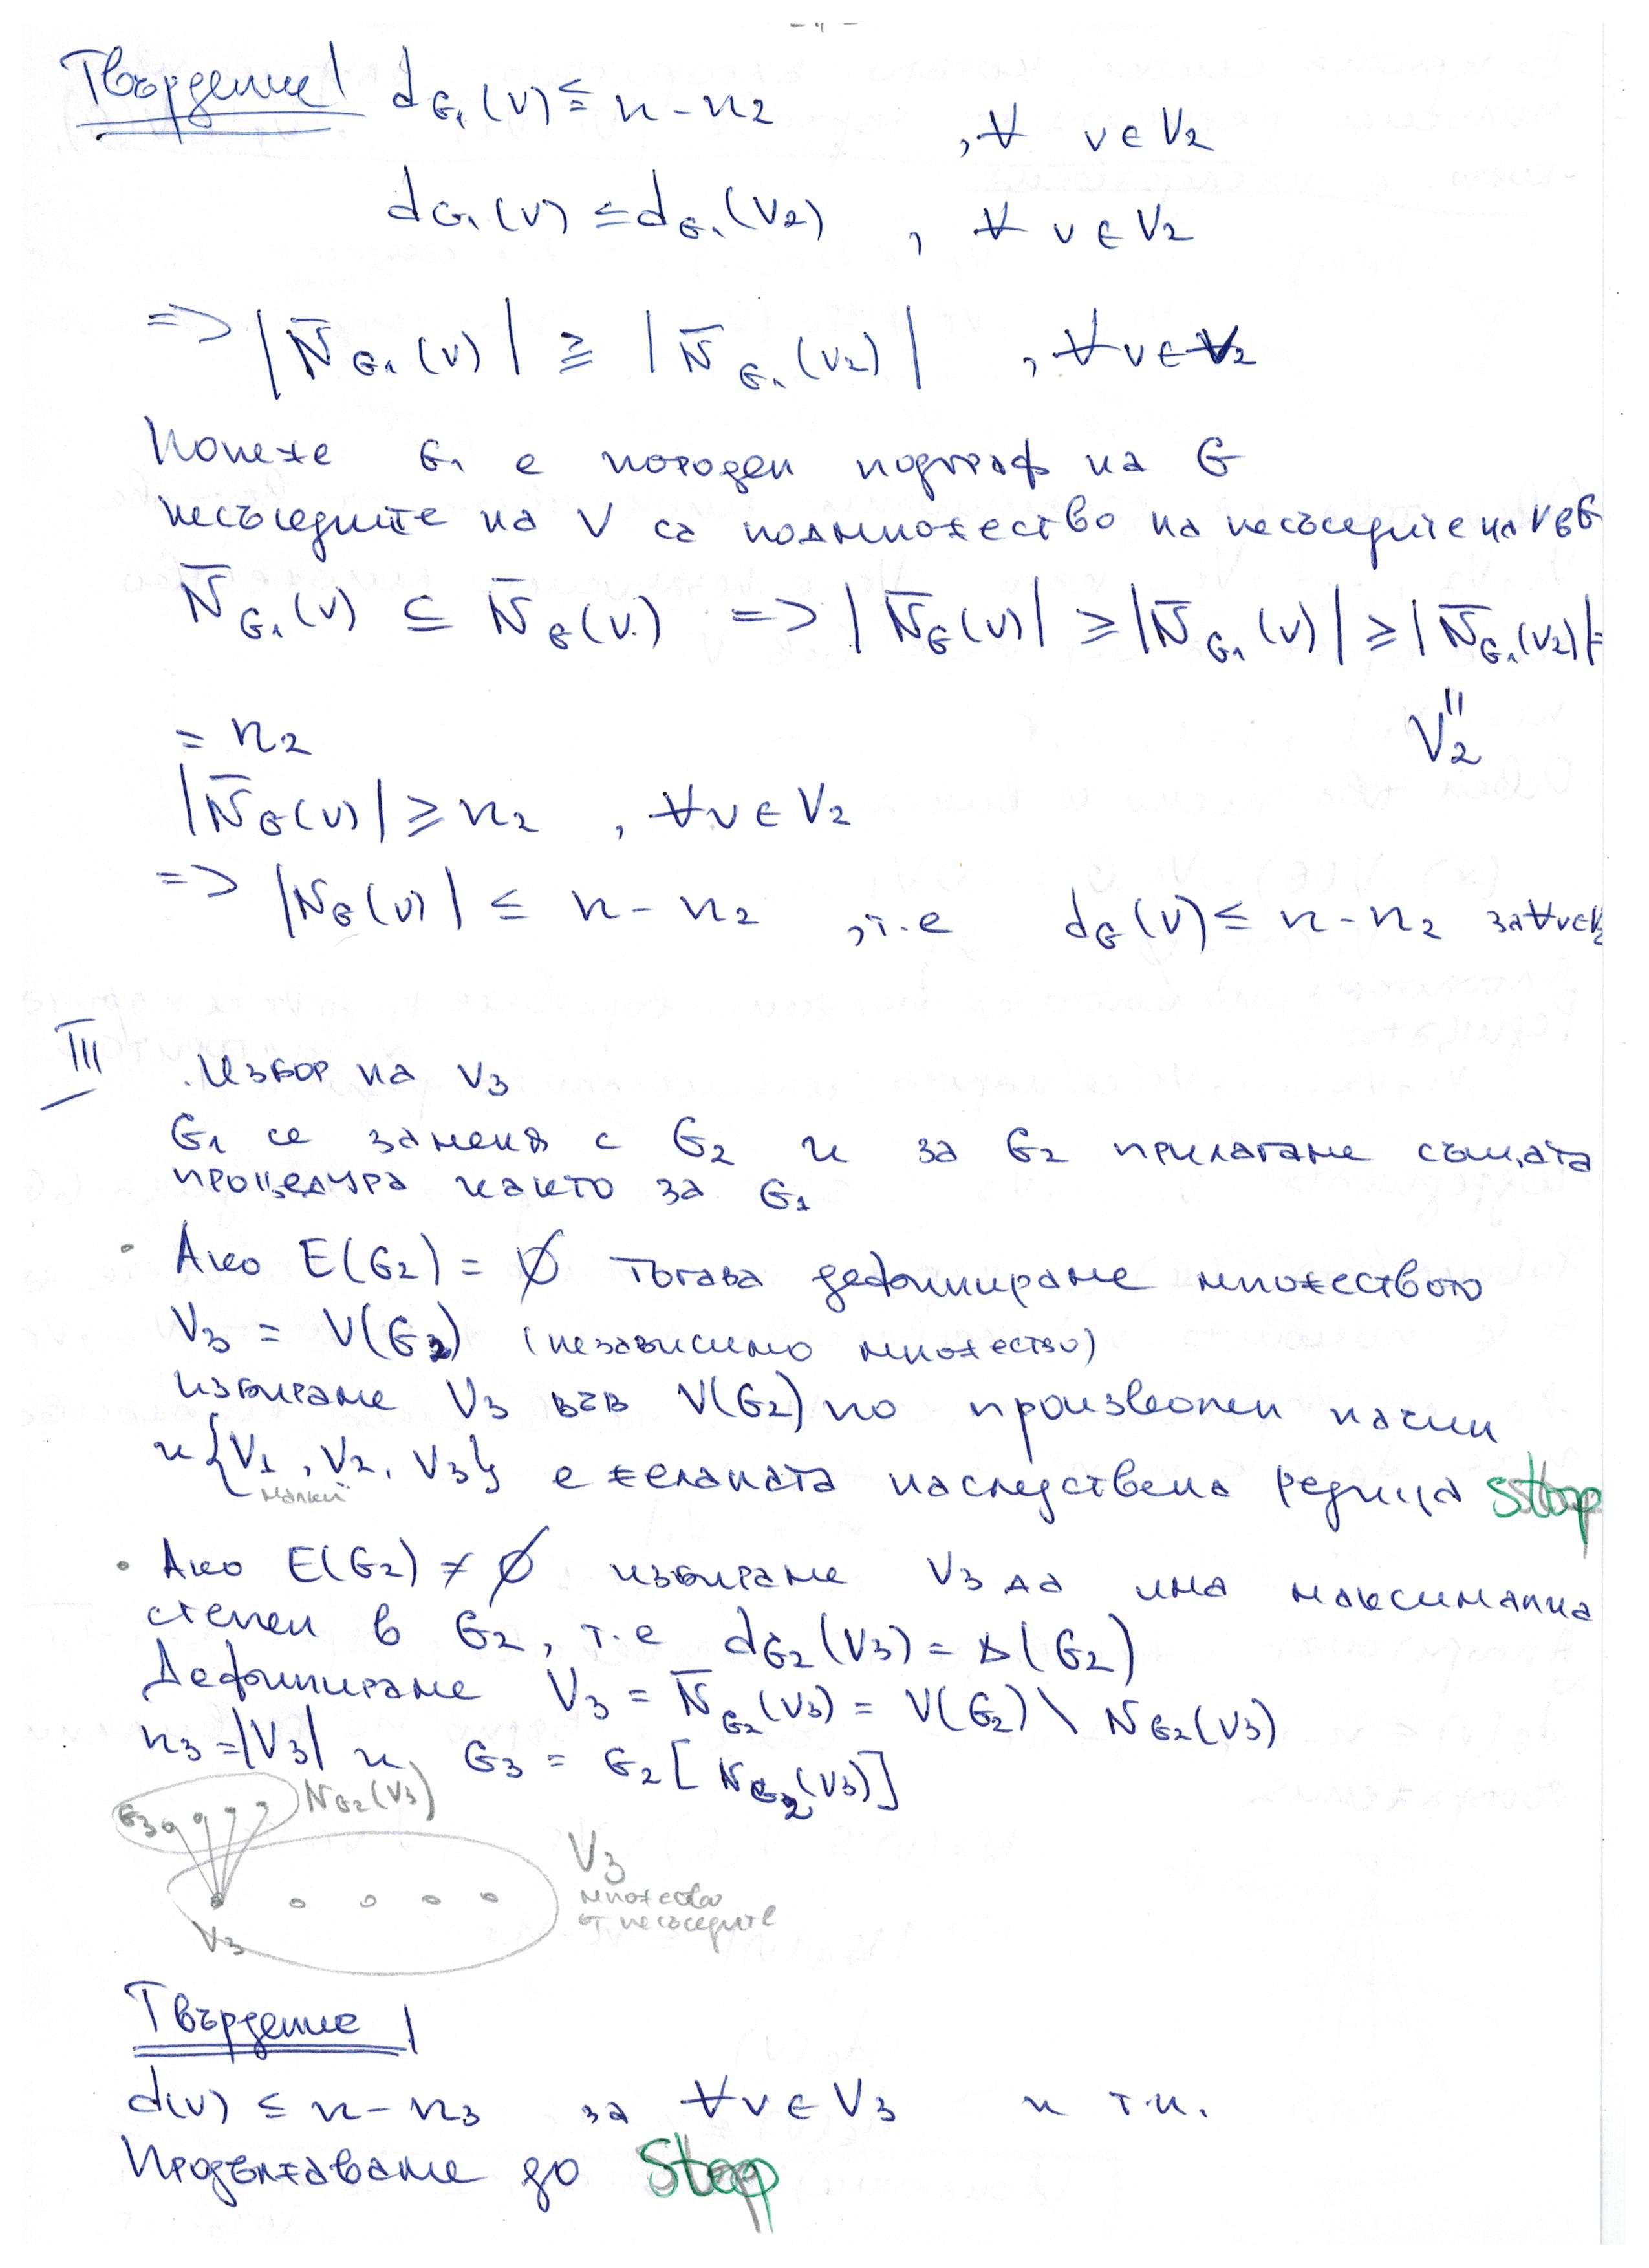 - 4 -
Твърдение! d_G₁(v) ≤ n - n₂ , ∀ v ∈ V₂
d_G₁(v) ≤ d_G₁(v₂) , ∀ v ∈ V₂
=> |N̅_G₁(v)| ≥ |N̅_G₁(v₂)| , ∀ v ∈ V₂
Понеже G₁ е породен подграф на G
несъседите на v са подмножество на несъседите на v в G
N̅_G₁(v) ⊆ N̅_G(v) => |N̅_G(v)| ≥ |N̅_G₁(v)| ≥ |N̅_G₁(v₂)| =
= n₂
"
V₂
|N̅_G(v)| ≥ n₂ , ∀ v ∈ V₂
=> |N_G(v)| ≤ n - n₂ , т.е d_G(v) ≤ n - n₂ за ∀ v ∈ V₂
III . Избор на v₃
G₁ се заменя с G₂ и за G₂ прилагаме същата
процедура както за G₁
• Ако E(G₂) = ∅ тогава дефинираме множеството
V₃ = V(G₂) (независимо множество)
избираме v₃ във V(G₂) по произволен начин
и {v₁, v₂, v₃} е желаната наследствена редица stop
малки
• Ако E(G₂) ≠ ∅ избираме v₃ да има максимална
степен в G₂, т.е d_G₂(v₃) = Δ(G₂)
Дефинираме V₃ = N̅_G₂(v₃) = V(G₂) \ N_G₂(v₃)
n₃ = |V₃| и G₃ = G₂[N_G₂(v₃)]
G₃ N_G₂(v₃)
V₃
множество
от несъседите
v₃
Твърдение!
d(v) ≤ n - n₃ за ∀ v ∈ V₃ и т.н.
Продължаваме до Stop